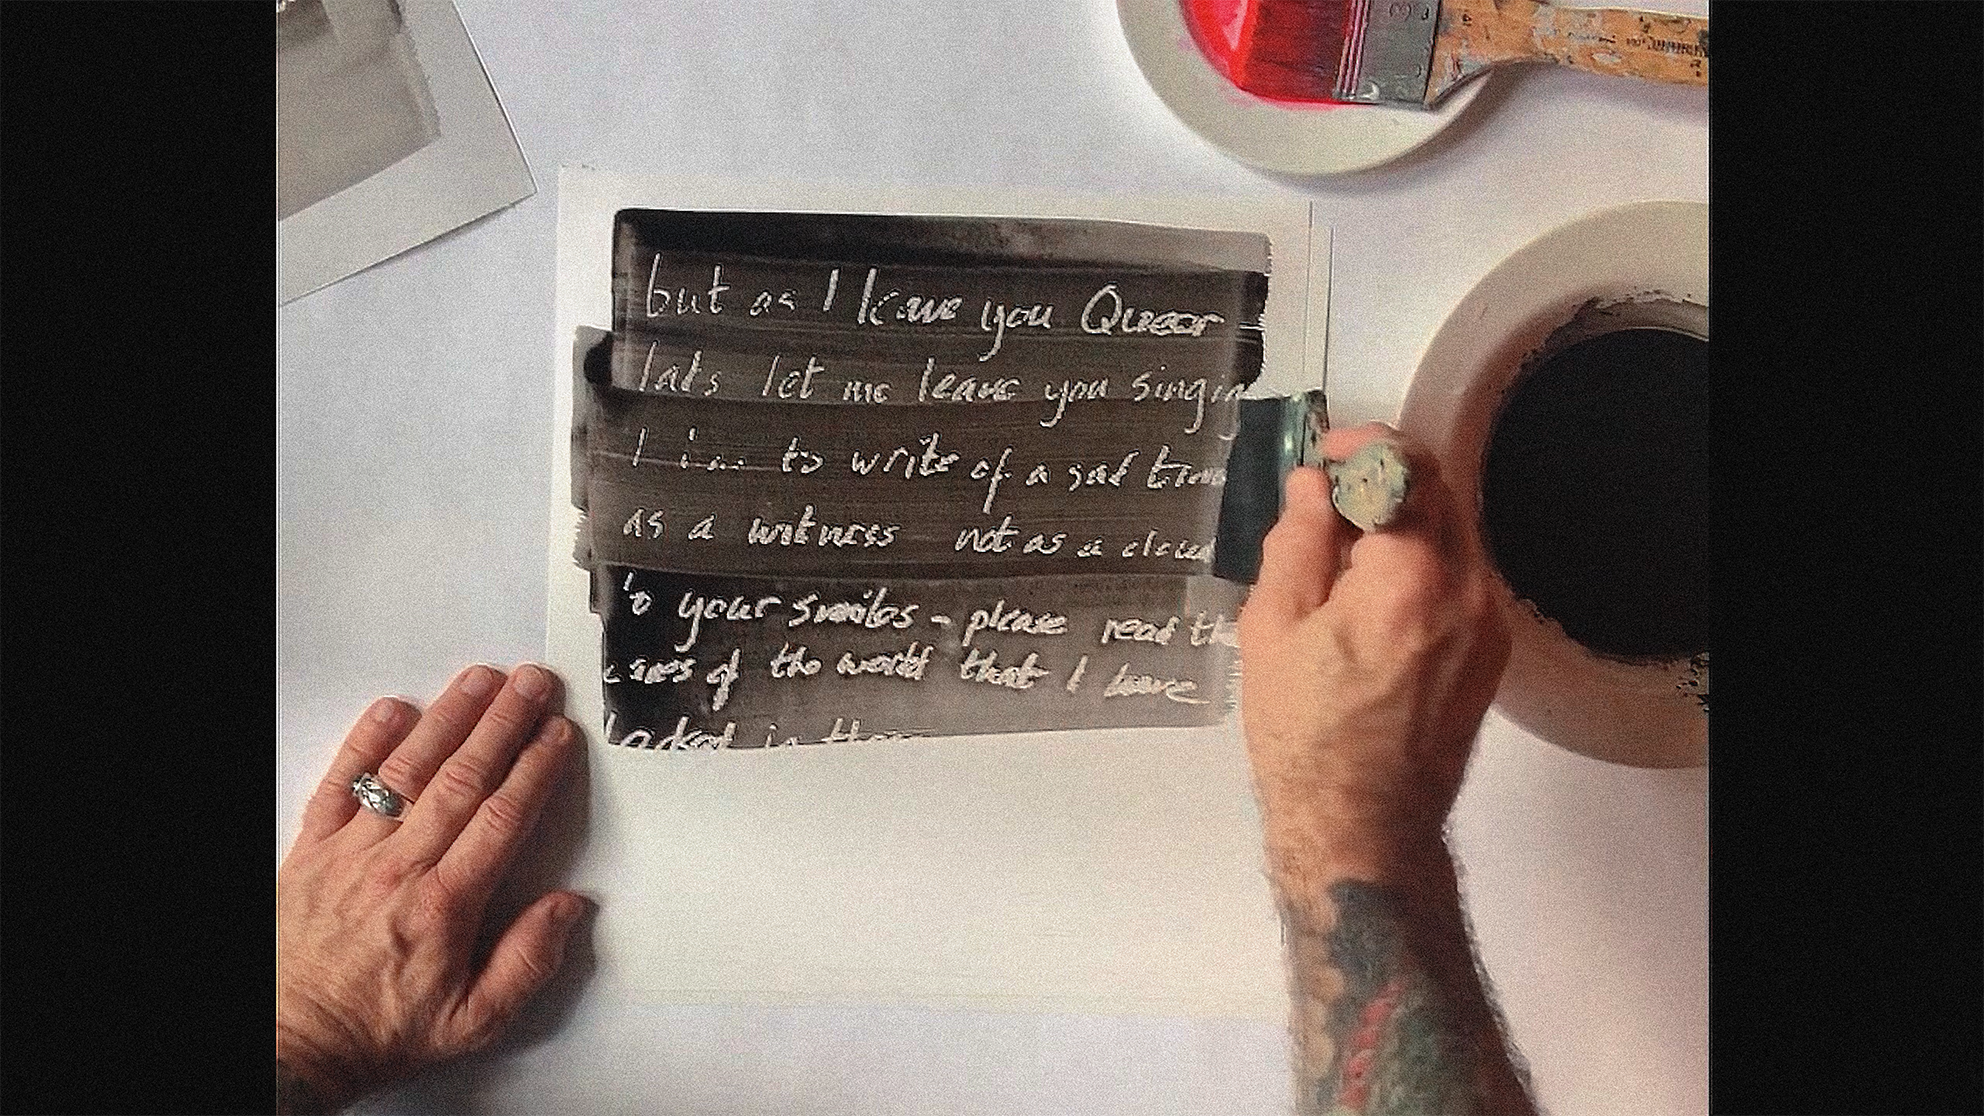 but as I leave you Queer
lads let me leave you singing
I to write of a sad time
as a witness not as a cloud
to your smiles - please read the
cares of the world that I have
locked in the